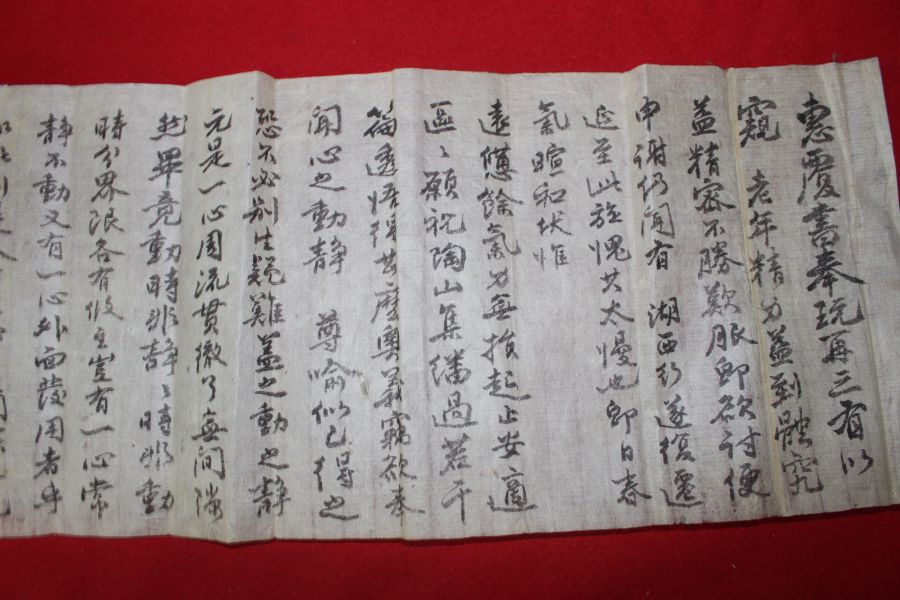 惠覆書奉玩再三有以
窺 老年精力益到體究
益精密不勝歎服卽欲討便
申謝仍聞有 湖西行遂復遷
延至此旋愧其太慢也卽日春
氣暄和伏惟
遠德餘氣力無損起止安適
區〻願祝陶山集繙過若干
篇透悟得甚麽奧義竊欲承
聞心之動靜 尊喩似已得之
恐不必別生疑難盖之動之靜
元是一心周流貫徹了無間隔
然畢竟動時非靜〻時非動
時分界限各有攸主豈有一心常
靜不動又有一心外面發用者乎